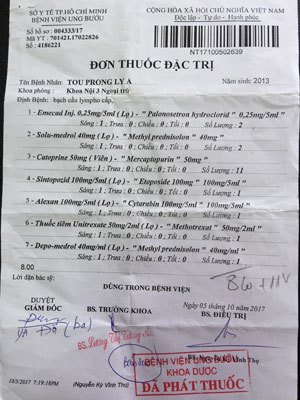 SỞ Y TẾ TP.HỒ CHÍ MINH
BỆNH VIỆN UNG BƯỚU
Số hồ sơ: 004333/17
Mã YT: 701421.17022826
Số: 4186221
CỘNG HÒA XÃ HỘI CHỦ NGHĨA VIỆT NAM
Độc lập - Tự do - Hạnh phúc
NT17100502639
ĐƠN THUỐC ĐẶC TRỊ
Tên Bệnh Nhân: TOU PRONG LY A
Năm sinh: 2013
Khoa phòng: Khoa Nội 3 Ngoại trú
Định bệnh: bạch cầu lympho cấp.
1 - Emecad Inj. 0,25mg/5ml (Lọ) - " Palonosetron hydroclorid " 0,25mg/5ml "
Sáng : 1 ; Trưa : 0 ; Chiều : 0 ; Tối : 0 Số Lượng : 2
2 - Solu-medrol 40mg (Lọ) - " Methyl prednisolon " 40mg "
Sáng : 1 ; Trưa : 0 ; Chiều : 0 ; Tối : 0 Số Lượng : 2
3 - Catoprine 50mg (Viên) - " Mercaptopurin " 50mg "
Sáng : 1 ; Trưa : 0 ; Chiều : 0 ; Tối : 0 Số Lượng : 11
4 - Sintopozid 100mg/5ml (Lọ) - " Etoposide 100mg " 100mg/5ml "
Sáng : 1 ; Trưa : 0 ; Chiều : 0 ; Tối : 0 Số Lượng : 1
5 - Alexan 100mg/5ml (Lọ) - " Cytarabin 100mg " 100mg/5ml "
Sáng : 1 ; Trưa : 0 ; Chiều : 0 ; Tối : 0 Số Lượng : 1
6 - Thuốc tiêm Unitrexate 50mg/2ml (Lọ) - " Methotrexat " 50mg/2ml "
Sáng : 1 ; Trưa : 0 ; Chiều : 0 ; Tối : 0 Số Lượng : 1
7 - Depo-medrol 40mg/ml (Lọ) - " Methyl prednisolon " 40mg/ml "
Sáng : 1 ; Trưa : 0 ; Chiều : 0 ; Tối : 0 Số Lượng : 1
8.00
Lời dặn bác sỹ:
DÙNG TRONG BỆNH VIỆN
DUYỆT
GIÁM ĐỐC
BS. TRƯỞNG KHOA
Ngày 05 tháng 10 năm 2017
BS. ĐIỀU TRỊ
BỆNH VIỆN UNG BƯỚU
KHOA DƯỢC
ĐÃ PHÁT THUỐC
10/5/2017 7:19:18PM
(Nguyễn Kỳ Vĩnh Thọ)